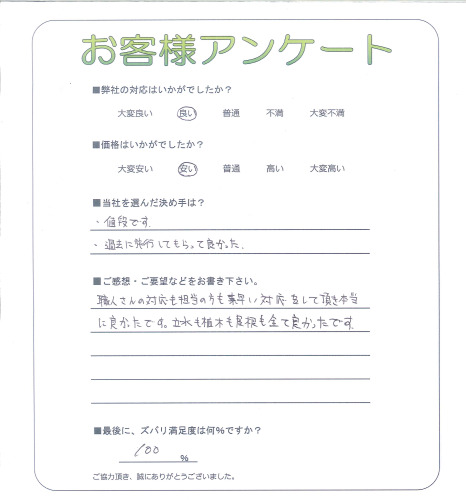 お客様アンケート
■弊社の対応はいかがでしたか？
大変良い 良い 普通 不満 大変不満
■価格はいかがでしたか？
大変安い 安い 普通 高い 大変高い
■当社を選んだ決め手は？
・値段です
・過去に発行してもらって良かった.
■ご感想・ご要望などをお書き下さい。
職人さんの対応も担当の方も素早い対応をして頂き本当
に良かったです。立水も植木も屋根も全て良かったです
■最後に、ズバリ満足度は何％ですか？
100 ％
ご協力頂き、誠にありがとうございました。